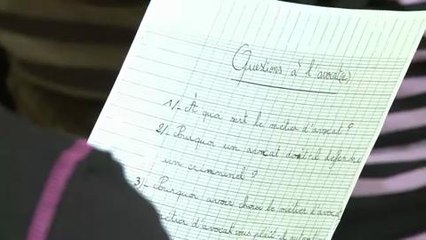 Questions à l'avocat(e)
1/- À quoi sert le métier d'avocat ?
2/- Pourquoi un avocat doit-il défendre
un criminel ?
3/- Pourquoi avoir choisi le métier d'avocat
métier d'avocat vous plaît